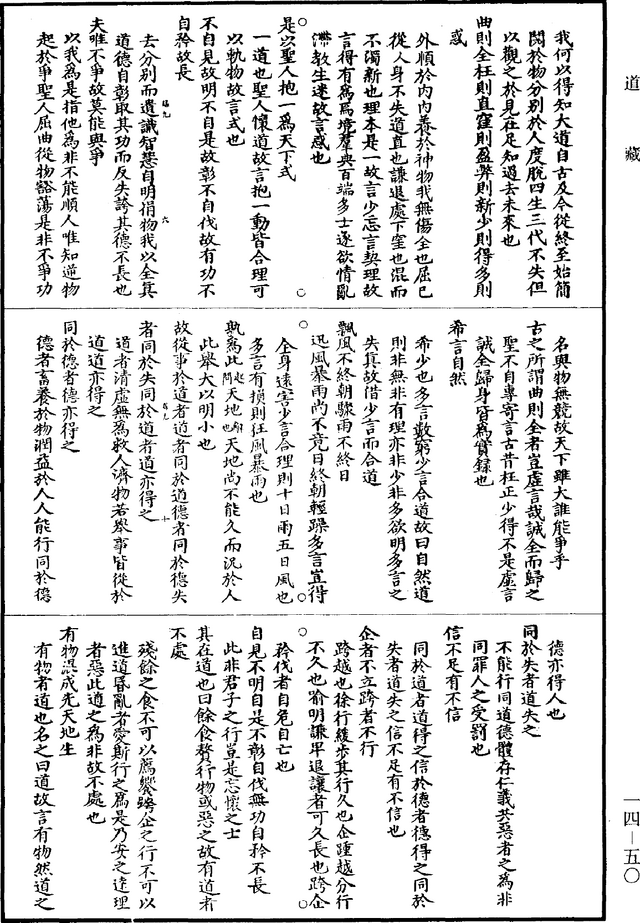 道藏
我何以得知大道自古及今從終至始簡
閱於物分別於人度脫四生三代不失但
以觀之於見在足知過去未來也
曲則全枉則直窪則盈弊則新少則得多則
惑
外順於內內養於神物我無傷全也屈己
從人身不失道直也謙退處下窪也混而
不濁新也理本是一故言少忘言契理故
言得有為焉壙羣典百端多士逐欲情亂
滯教生迷故言惑也
是以聖人抱一為天下式
一道也聖人懷道故言抱一動皆合理可
以軌物故言式也
不自見故明不自是故彰不自伐故有功不
自矜故長
去分別而遺識智慧自明捐物我以全其
道德自彰取其功而反失誇其德不長也
夫唯不爭故莫能與爭
以我為是指他為非不能順人唯知逆物
起於爭聖人屈曲從物豁蕩是非不爭功
名與物無競故天下雖大誰能爭乎
古之所謂曲則全者豈虛言哉誠全而歸之
聖不自專寄言古昔枉正少得不是虛言
誠全歸身皆為實錄也
希言自然
希少也多言數窮少言合道故曰自然道
則非無非有理亦非少非多欲明多言之
失其故借少言而合道
飄風不終朝驟雨不終日
迅風暴雨尚不竟日終朝輕躁多言豈得
全身遠害少言合理則十日雨五日風也
多言有損則狂風暴雨也
孰為此天地也天地尚不能久而況於人
此舉大以明小也
故從事於道者道者同於道德者同於德失
者同於失同於道者道亦得之
道者清虛無為救人濟物若舉事皆從於
道道亦得之
同於德者德亦得之
德者畜養於物潤益於人人能行同於德
德亦得人也
同於失者道失之
不能行同道德體存仁義共惡者之為非
同罪人之受罰也
信不足有不信
同於道者道得之信於德者德得之同於
失者道失之信不足有不信也
企者不立跨者不行
跨越也徐行緩步其行久也企踵越分行
不久也喻明謙卑退讓者可久長也跨企
矜伐者自危自亡也
自見不明自是不彰自伐無功自矜不長
此非君子之行豈是忘懷之士
其在道也曰餘食贅行物或惡之故有道者
不處
殘餘之食不可以薦饗跨企之行不可以
進道昏亂者愛斯行之為是乃安之達理
者惡此道之為非故不處也
有物混成先天地生
有物者道也名之曰道故言有物然道之
一四－五〇